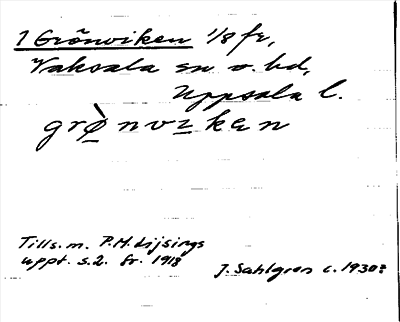 1 Grönviken 1/8 fr,
Vaksala sn o. hd,
Uppsala l.
grø̀nvɪken
Tills. m. P.H. Lijsings
uppt. s.2. fr. 1918
J. Sahlgren c. 1930?